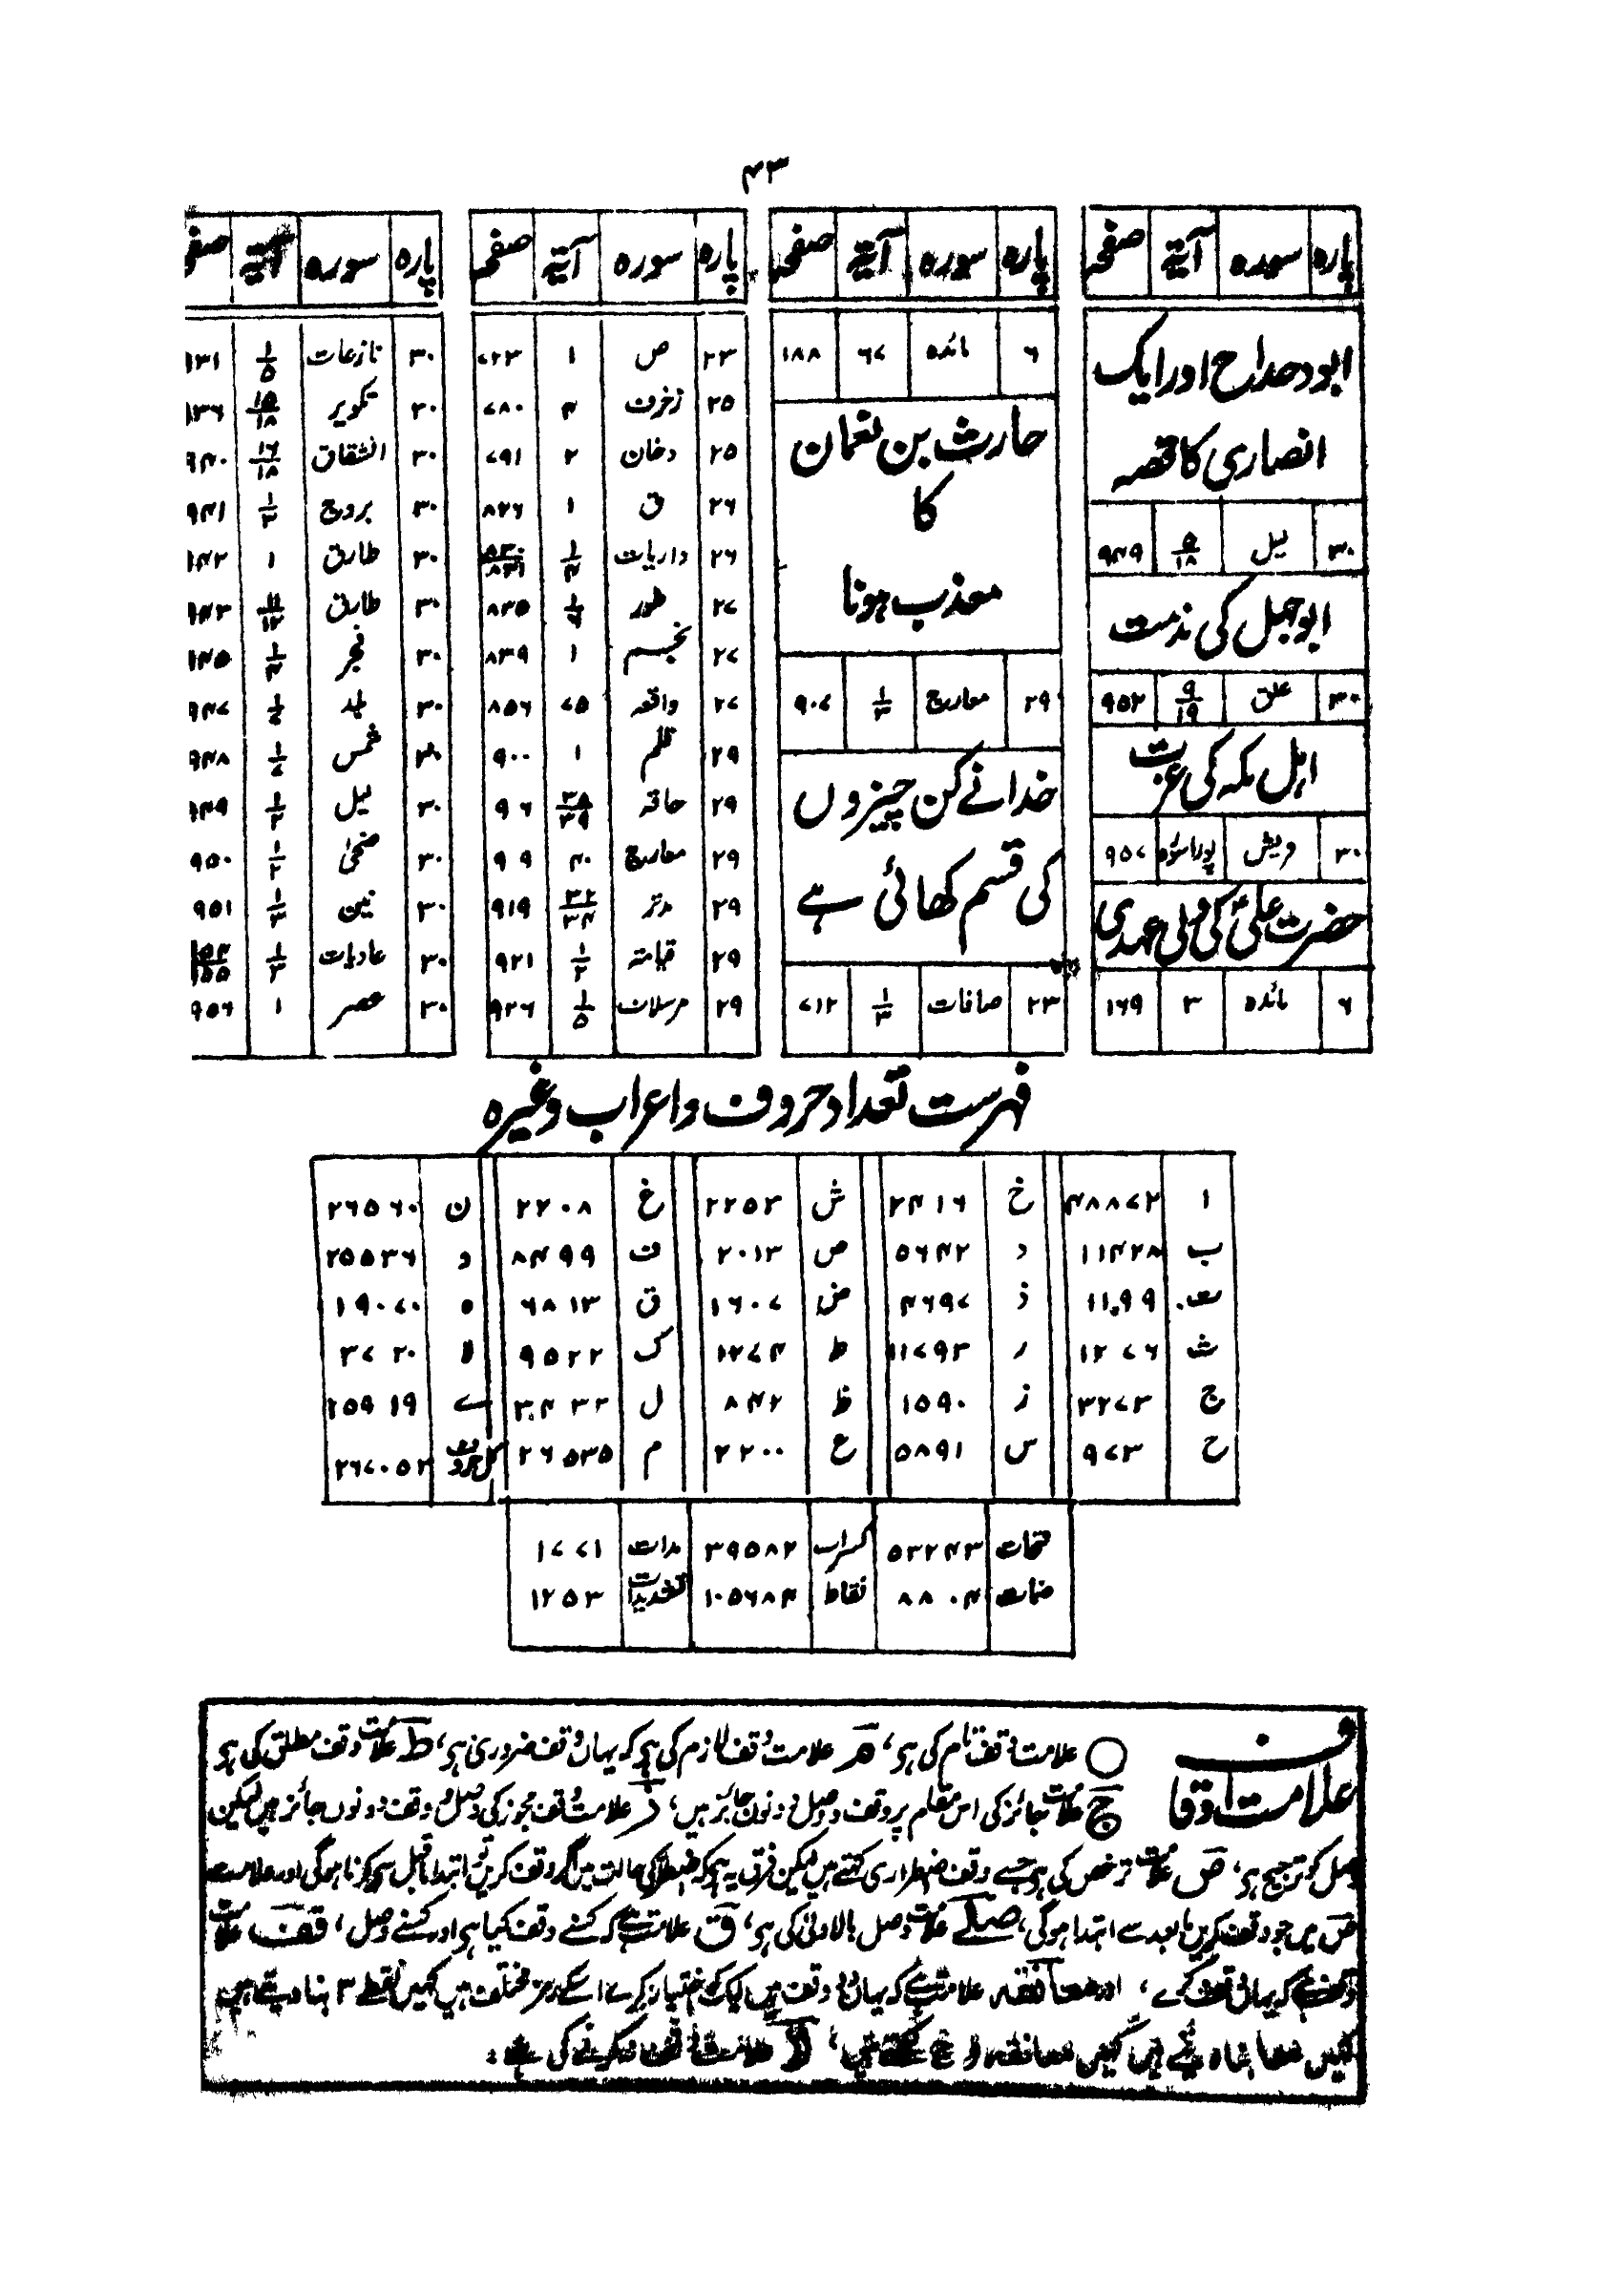 ۴۳
پارہ سورہ آیۃ صفحہ
ابودحداح اور ایک
انصاری کا قصہ
۳۰ لیل ۵/۱۸ ۹۴۹
ابوجہل کی مذمت
۳۰ علق ۹/۱۹ ۹۵۲
اہل مکہ کی عزت
۳۰ قریش پورا سورہ ۹۵۷
حضرت علیؑ کی ولی عہدی
۶ مائدہ ۳ ۱۶۹
پارہ سورہ آیۃ صفحہ
۶ مائدہ ۶۷ ۱۸۸
حارث بن نعمان
کا
معذب ہونا
۲۹ معارج ۱/۳ ۹۰۷
خدا نے کن چیزوں
کی قسم کھائی ہے
۲۳ صافات ۱/۳ ۷۱۲
پارہ سورہ آیۃ صفحہ
۲۳ ص ۱ ۷۲۳
۲۵ زخرف ۲ ۷۸۰
۲۵ دخان ۲ ۷۹۱
۲۶ ق ۱ ۸۲۶
۲۶ ذاریات ۱/۴
۲۷ طور ۱/۶ ۸۳۵
۲۷ نجم ۱ ۸۳۹
۲۷ واقعہ ۷۵ ۸۵۶
۲۹ قلم ۱ ۹۰۰
۲۹ حاقہ ۳۸/۳۹ ۹۰۶
۲۹ معارج ۴۰ ۹۰۹
۲۹ مدثر ۳۲/۳۴ ۹۱۹
۲۹ قیامۃ ۱/۲ ۹۲۱
۲۹ مرسلات ۱/۵ ۹۲۶
پارہ سورہ آیۃ صفحہ
۳۰ نازعات ۱/۵ ۹۳۱
۳۰ تکویر ۱۵/۱۸ ۹۳۶
۳۰ انشقاق ۱۶/۱۸ ۹۴۰
۳۰ بروج ۱/۳ ۹۴۱
۳۰ طارق ۱ ۹۴۲
۳۰ طارق ۱۱/۱۲ ۹۴۳
۳۰ فجر ۱/۴ ۹۴۵
۳۰ بلد ۹۴۷
۳۰ شمس ۱/۷ ۹۴۸
۳۰ لیل ۱/۳ ۹۴۹
۳۰ ضحیٰ ۱/۲ ۹۵۰
۳۰ تین ۱/۳ ۹۵۱
۳۰ عادیات ۱/۳
۳۰ عصر ۱ ۹۵۶
فہرست تعداد حروف و اعراب وغیرہ
ا ۴۸۸۷۲ خ ۲۴۱۶ ش ۲۲۵۳ غ ۲۲۰۸ ن ۲۶۵۶۰
ب ۱۱۴۲۸ د ۵۶۴۲ ص ۲۰۱۳ ف ۸۴۹۹ و ۲۵۵۳۶
ت ۱۱۰۹۹ ذ ۴۶۹۷ ض ۱۶۰۷ ق ۶۸۱۳ ہ ۱۹۰۷۰
ث ۱۲۷۶ ر ۱۱۷۹۳ ط ۱۲۷۴ ک ۹۵۲۲ لا ۳۷۲۰
ج ۳۲۷۳ ز ۱۵۹۰ ظ ۸۴۲ ل ۳۰۴۳۲ ے ۲۵۹۱۹
ح ۹۷۳ س ۵۸۹۱ ع ۲۲۰۰ م ۲۶۵۳۵ کل حروف ۲۶۷۰۵۳
فتحات ۵۳۲۴۳ کسرات ۳۹۵۸۲ مدات ۱۷۷۱
ضمات ۸۸۰۴ نقاط ۱۰۵۶۸۴ تشدیدات ۱۲۵۳
ف
علامت اوقاف
○ علامت وقف تام کی ہی، مـ علامت وقف لازم کی ہی کہ یہاں وقف ضروری ہی، ط علامت وقف مطلق کی ہی
ج علامت جائز کی اس مقام پر وقف و وصل دونوں جائز ہیں، ز علامت وقف مجوز کی وصل و وقف دونوں جائز ہیں لیکن
وصل کو ترجیح ہی، ص علامت ترخص کی ہی جسے وقف اضطراری کہتے ہیں لیکن فرق یہ ہی کہ اضطرار کی حالت میں اگر وقف کریں تو ابتدا ماقبل سے کرنا ہوگی اور علامت
ص میں جو وقف کریں مابعد سے ابتدا ہوگی، صلے علامت وصل بالاولیٰ کی ہی، ق علامت ہے کہ کسنے وقف کیا ہی اور کسنے وصل، قف علامت
وقف ہے کہ یہاں وقف کرے، اور معانقہ علامت ہے کہ یہاں دو وقف ہیں ایک کو اختیار کرے اسکے رمز مختلف ہیں کہیں نقطے ۳ بنا دیتے ہیں
کہیں مع بنا دیتے ہیں کہیں معانقہ لا علامت وقف نہ کرنے کی ہے